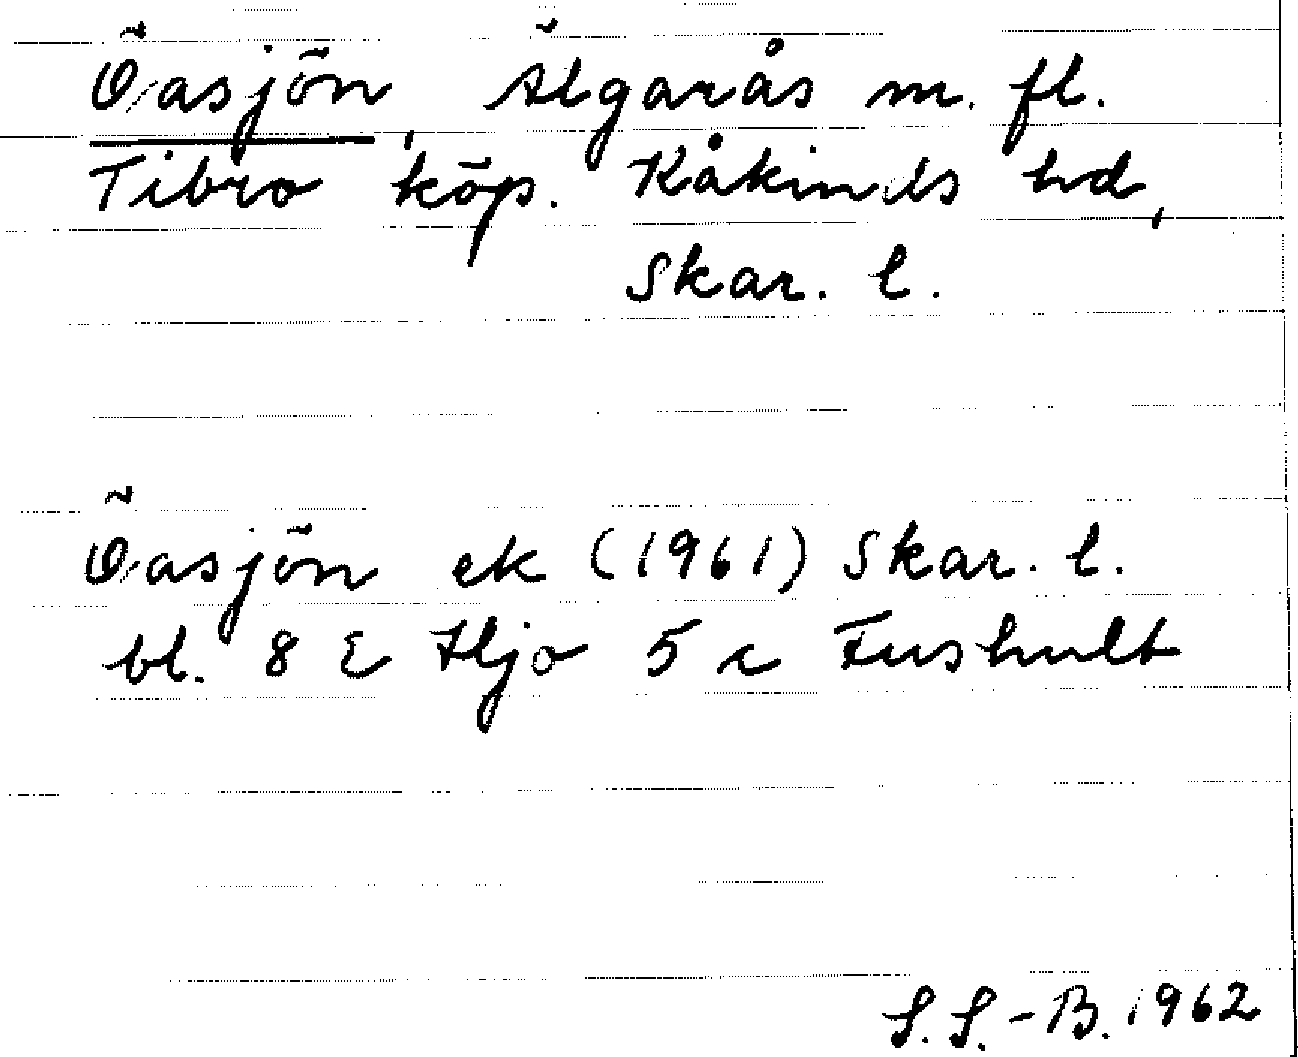 Öasjön, Älgarås m. fl.
Tibro köp. Kåkinds hd,
Skar. l.
Öasjön ek (1961) Skar. l.
bl. 8 E Hjo 5 c Fushult
S. S.-B. 1962